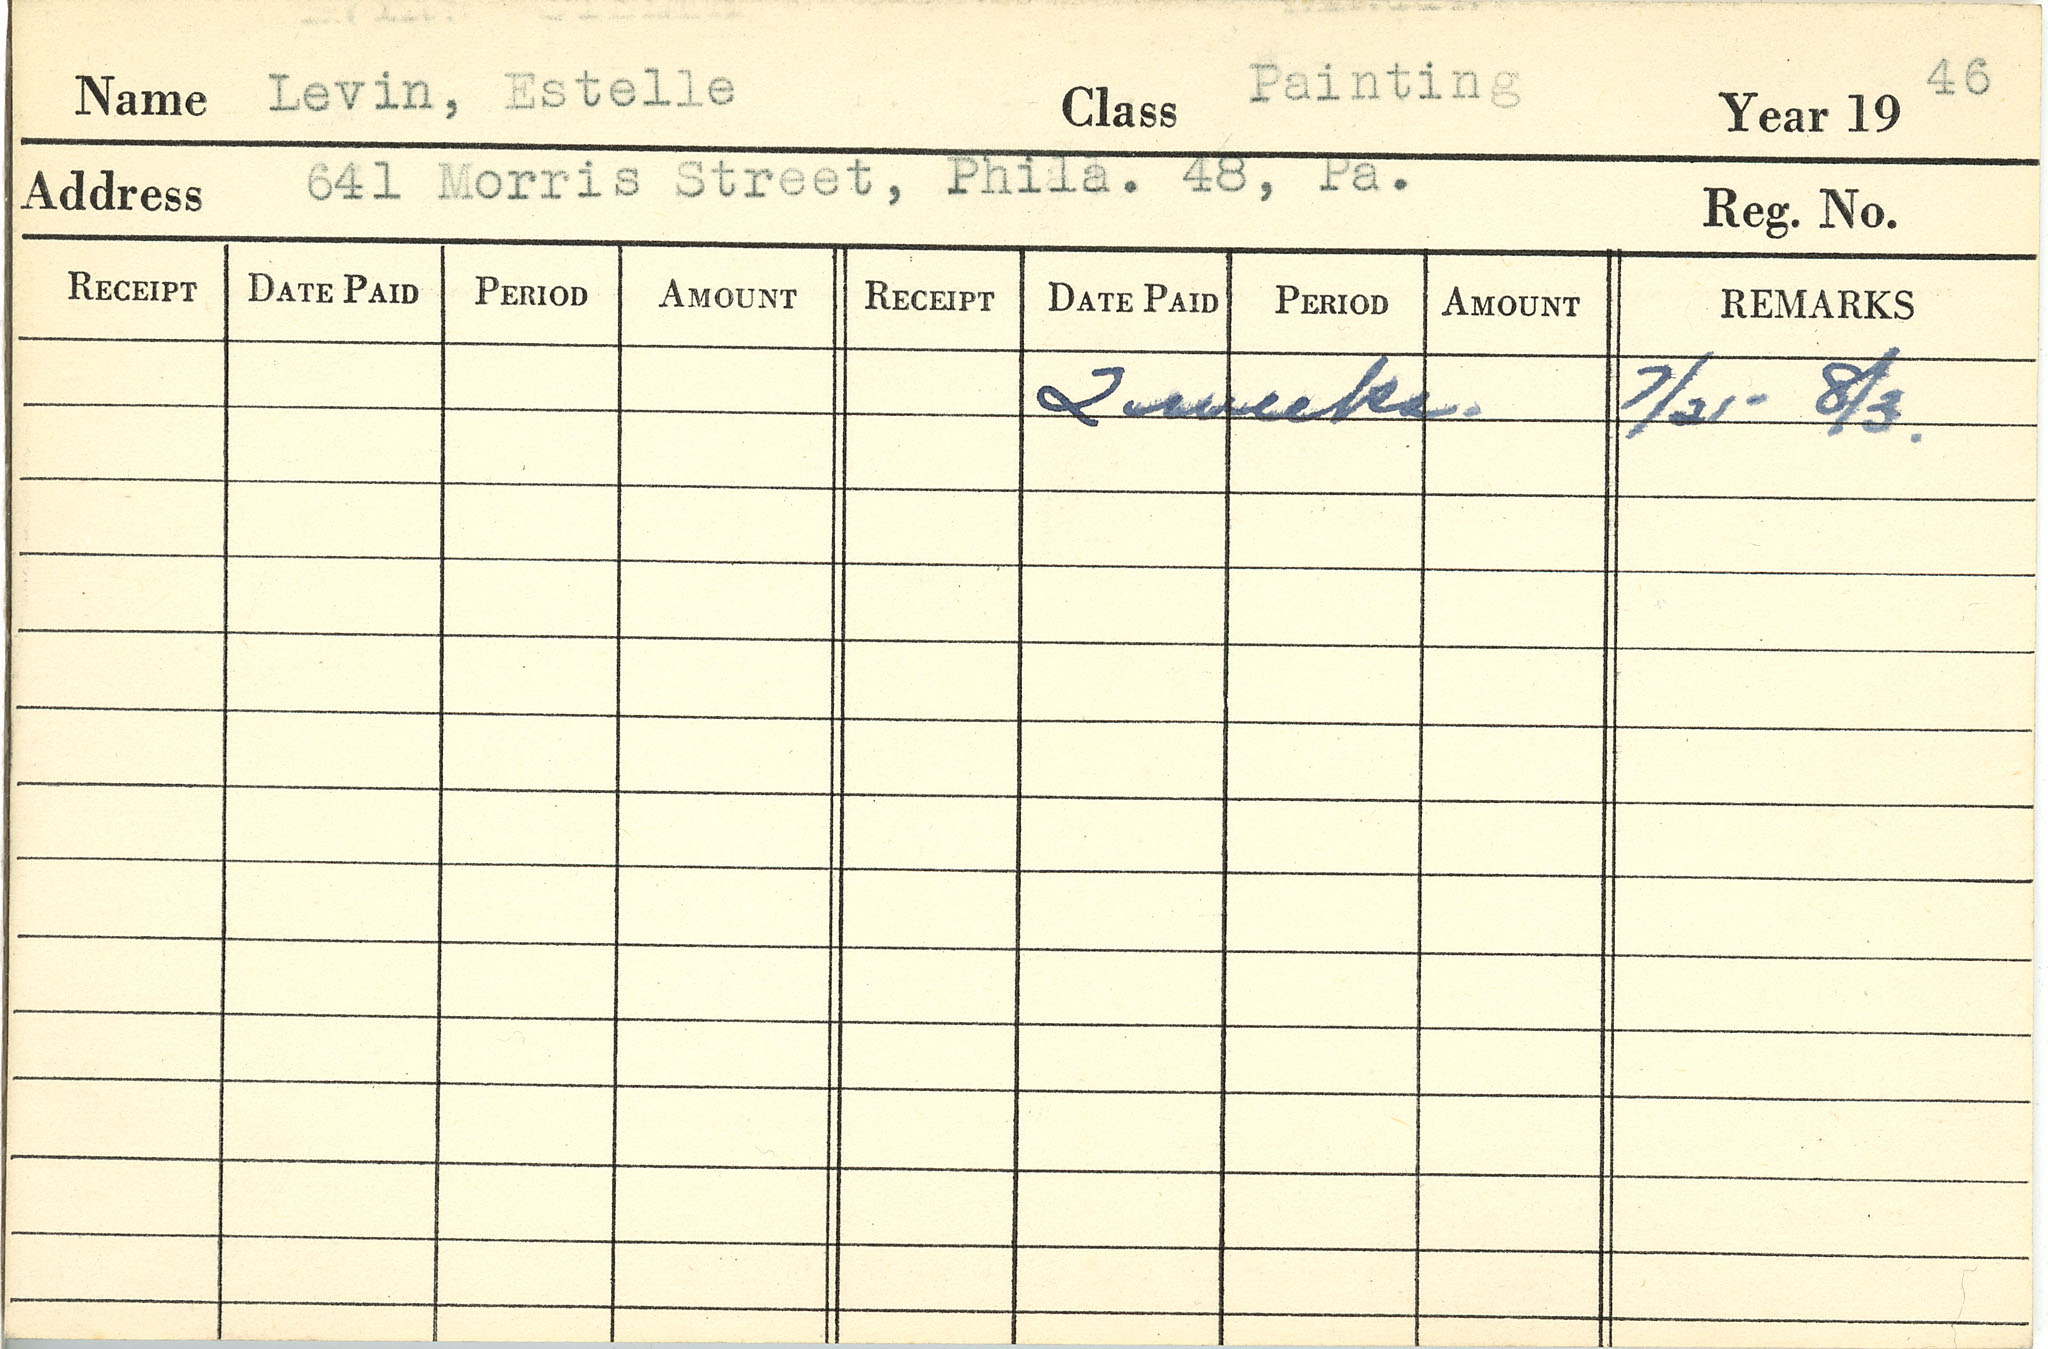 Name Levin, Estelle Class Painting Year 19 46
Address 641 Morris Street, Phila. 48, Pa. Reg. No.
RECEIPT DATE PAID PERIOD AMOUNT RECEIPT DATE PAID PERIOD AMOUNT REMARKS
2 weeks. 7/21- 8/3.